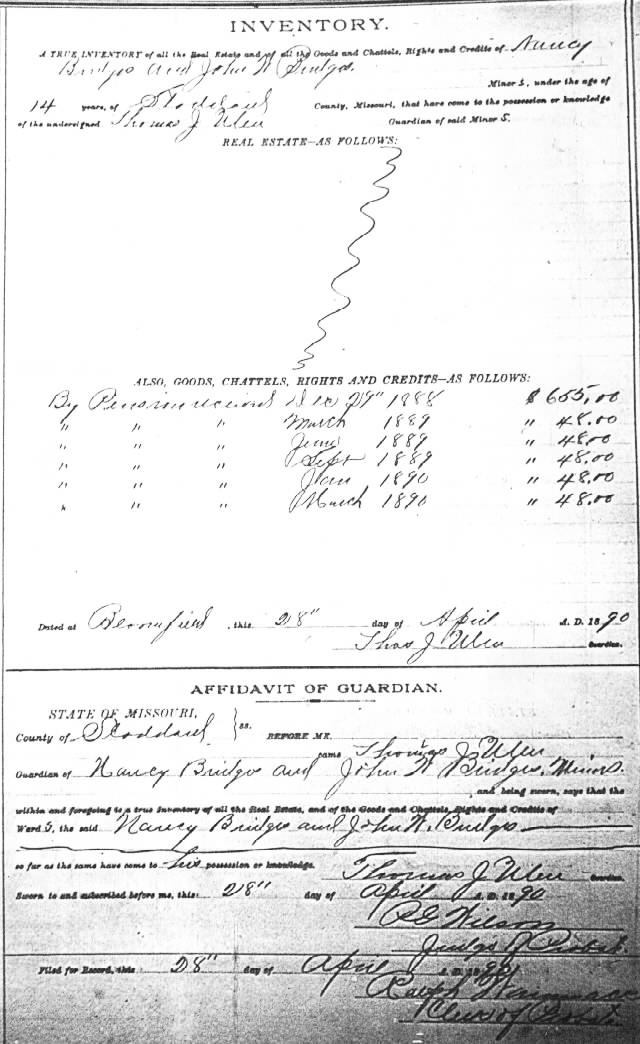 INVENTORY.
A TRUE INVENTORY of all the Real Estate and of all the Goods and Chattels, Rights and Credits of Nancy
Bridges and John W Bridges.
Minor s, under the age of
14 years, of Stoddard County, Missouri, that have come to the possession or knowledge
of the undersigned Thomas J Ulen Guardian of said Minor s.
REAL ESTATE—AS FOLLOWS:
ALSO, GOODS, CHATTELS, RIGHTS AND CREDITS—AS FOLLOWS:
By Pension received Dec 29" 1888 $655.00
" " " March 1889 " 48.00
" " " June 1889 " 48.00
" " " Sept 1889 " 48.00
" " " Jan 1890 " 48.00
" " " March 1890 " 48.00
Dated at Bloomfield, this 28" day of April A. D. 1890
Thos J Ulen Guardian.
AFFIDAVIT OF GUARDIAN.
STATE OF MISSOURI,
County of Stoddard } ss. BEFORE ME,
came Thomas J Ulen
Guardian of Nancy Bridges and John W Bridges, Minors.
and being sworn, says that the
within and foregoing is a true Inventory of all the Real Estate, and of the Goods and Chattels, Rights and Credits of
Ward s, the said Nancy Bridges and John W. Bridges
so far as the same have come to his possession or knowledge.
Thomas J Ulen Guardian.
Sworn to and subscribed before me, this 28" day of April A. D. 1890
Wilson
Judge of Probate.
Filed for Record, this 28" day of April A. D. 1890
Ralph
Clerk of Probate